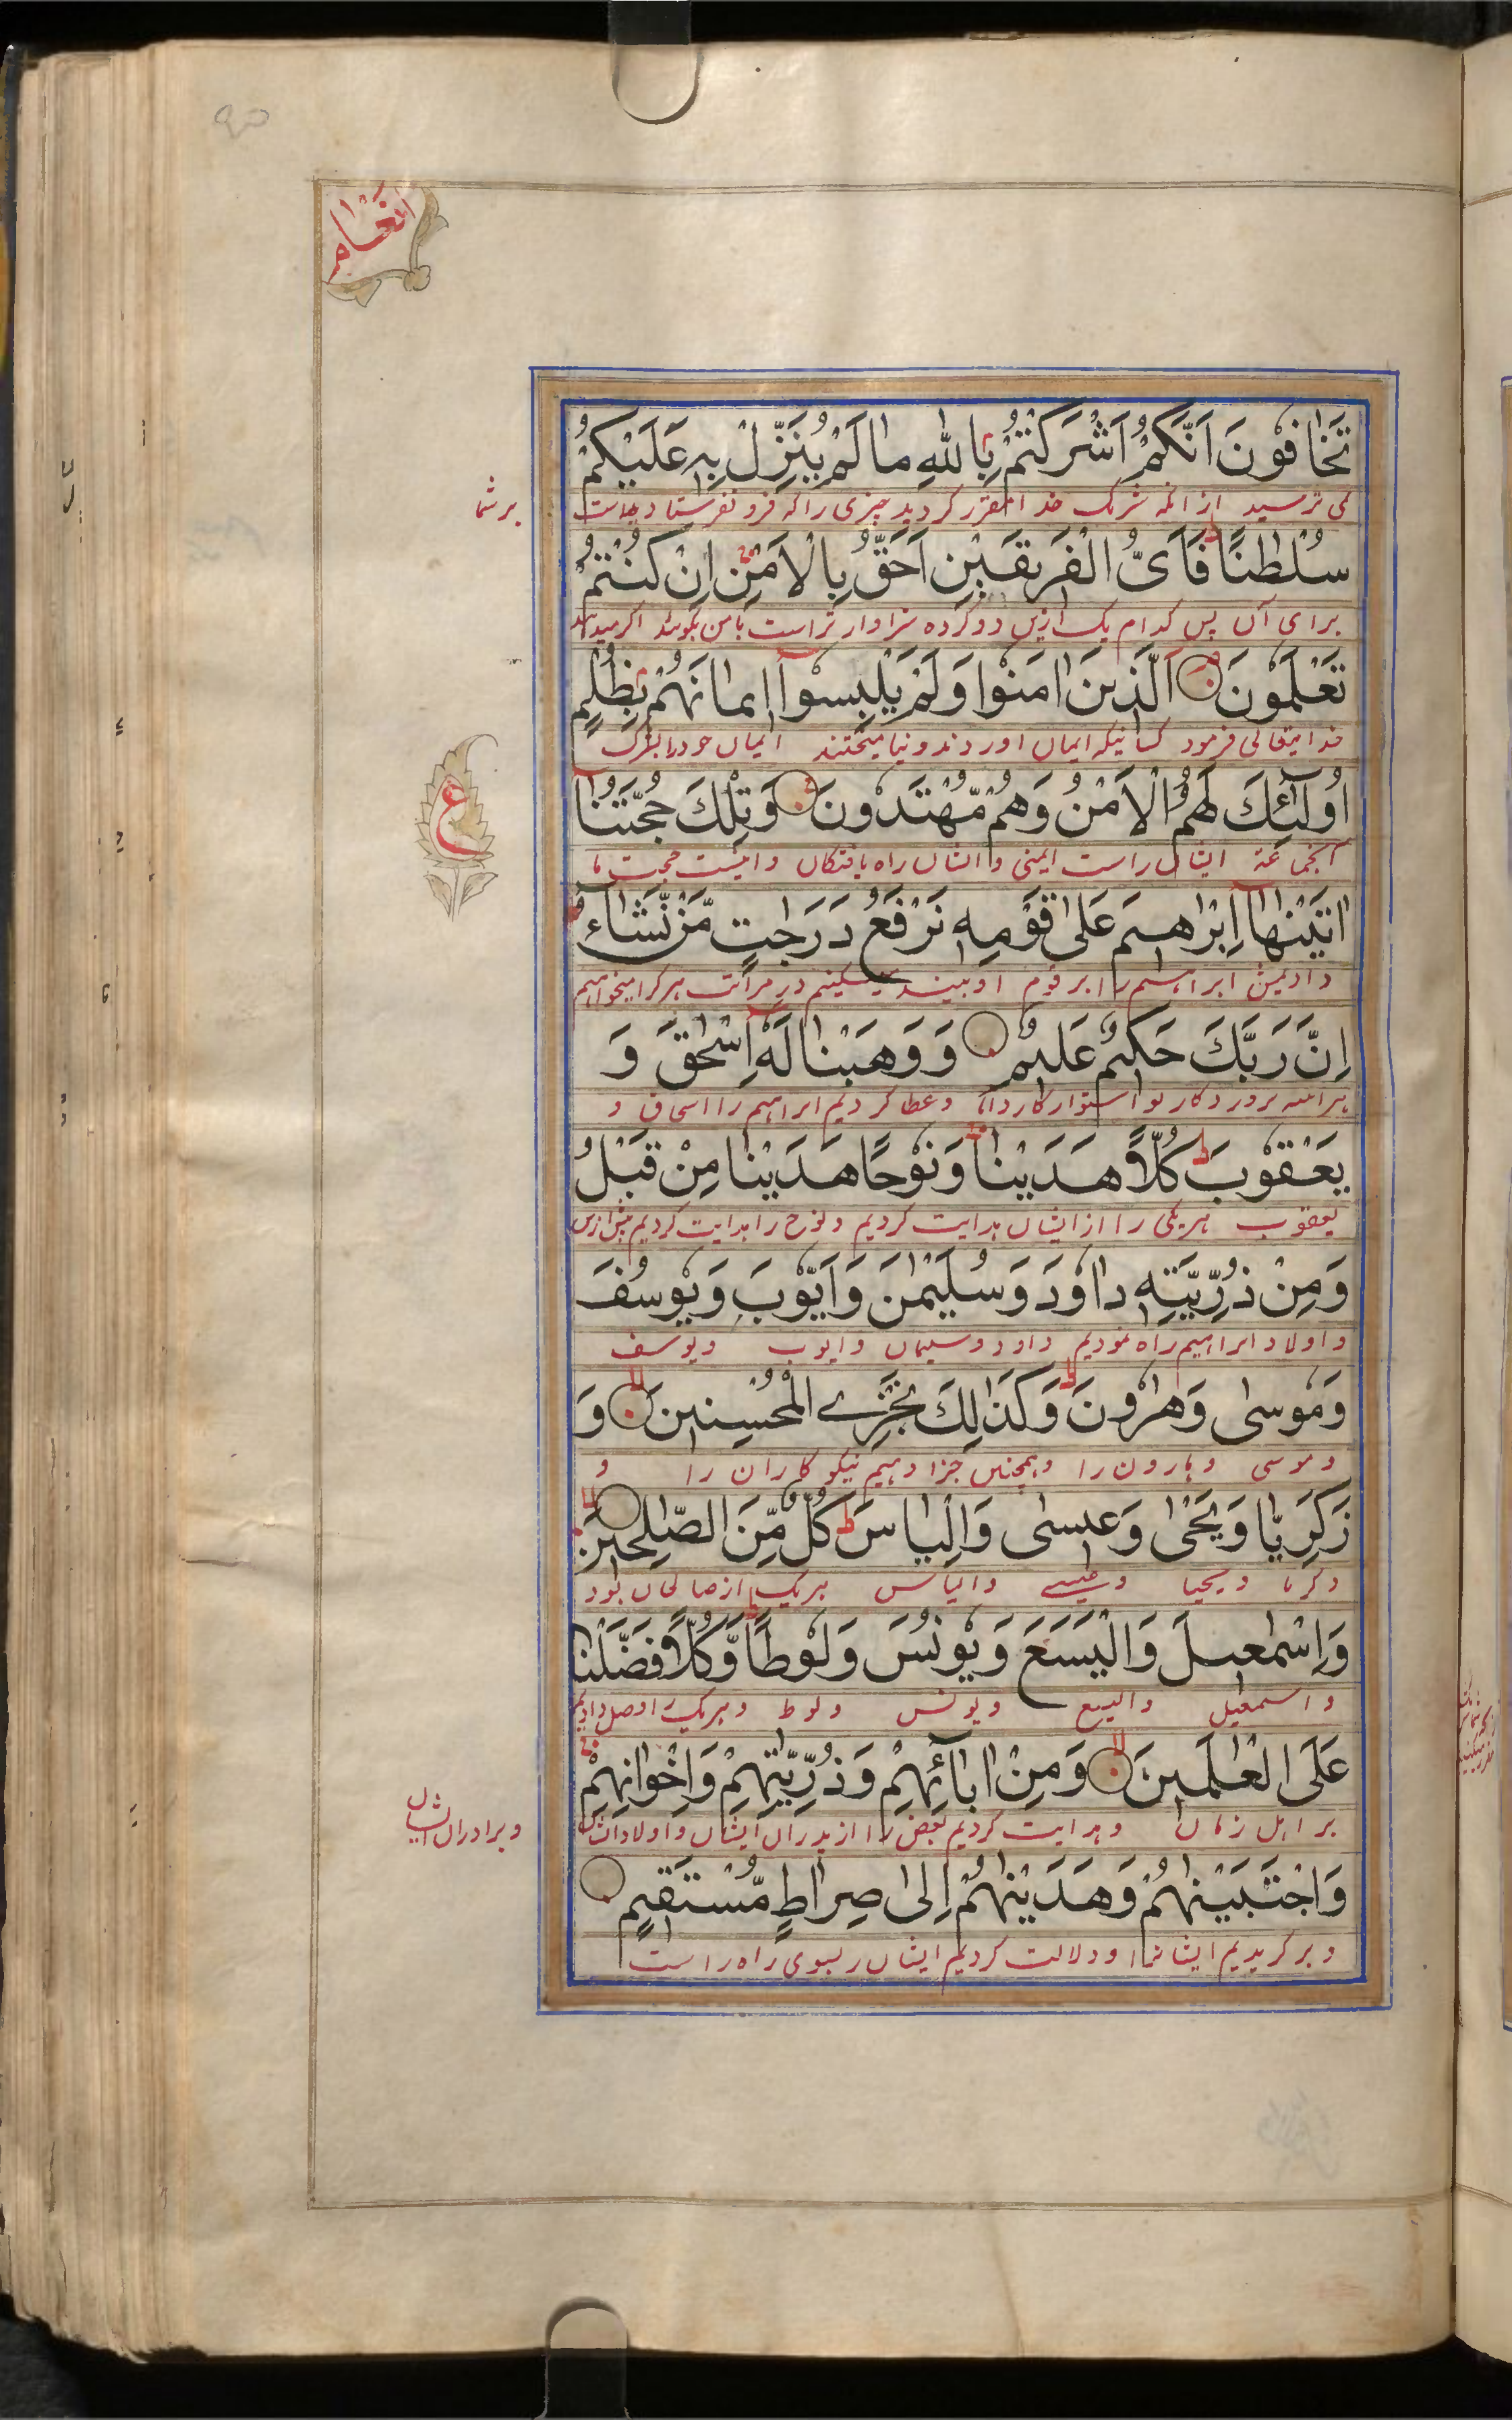 انعام
تَخَافُونَ اَنَّكُمْ اَشْرَكْتُمْ بِاللّٰهِ مَا لَمْ يُنَزِّلْ بِهٖ عَلَيْكُمْ
می ترسید از انکه شرک خدا مقرر کردید چیزی را که فرو نفرستاد
بر شما
سُلْطٰنًا فَاَىُّ الْفَرِيقَيْنِ اَحَقُّ بِالْاَمْنِ اِنْ كُنْتُمْ
برای آن پس کدام یک ازین دو کرده سزاوار تراست بامن بکویید اکر میدانید
تَعْلَمُونَ اَلَّذِينَ اٰمَنُوا وَلَمْ يَلْبِسُوٓا اِيمَانَهُمْ بِظُلْمٍ
خدایتعالی فرمود کسانیکه ایمان اوردند و نیامیختند ایمان خود را بشرک
اُولٰٓئِكَ لَهُمُ الْاَمْنُ وَهُمْ مُّهْتَدُونَ وَتِلْكَ حُجَّتُنَا
ع
آنجماعة ایشان راست ایمنی و ایشان راه یافتکان و اینست حجت ما
اٰتَيْنٰهَآ اِبْرٰهِيمَ عَلٰى قَوْمِهٖ نَرْفَعُ دَرَجٰتٍ مَّنْ نَّشَآءُ
دادیمش ابراهیم را بر قوم او بلند میکنیم در مراتب هر کرا میخواهیم
اِنَّ رَبَّكَ حَكِيمٌ عَلِيمٌ وَوَهَبْنَا لَهٗٓ اِسْحٰقَ وَ
هرآینه پروردکار تو استوار کار داناست و عطا کردیم ابراهیم را اسحاق و
يَعْقُوبَ كُلًّا هَدَيْنَا وَنُوحًا هَدَيْنَا مِنْ قَبْلُ
یعقوب هریکی را از ایشان هدایت کردیم و نوح را هدایت کردیم پیش ازین
وَمِنْ ذُرِّيَّتِهٖ دَاوٗدَ وَسُلَيْمٰنَ وَاَيُّوبَ وَيُوسُفَ
و اولاد ابراهیم راه نمودیم داود و سلیمان و ایوب و یوسف
وَمُوسٰى وَهٰرُونَ وَكَذٰلِكَ نَجْزِے الْمُحْسِنِينَ وَ
و موسی و هارون را و همچنین جزا دهیم نیکو کاران را و
زَكَرِيَّا وَيَحْيٰى وَعِيسٰى وَاِلْيَاسَ كُلٌّ مِّنَ الصّٰلِحِينَ
ذکریا و یحیا و عیسے و الیاس هریک از صالحان بود
وَاِسْمٰعِيلَ وَالْيَسَعَ وَيُونُسَ وَلُوطًا وَّكُلًّا فَضَّلْنَا
و اسمعیل و الیسع و یونس و لوط و هریک را فضل دادیم
عَلَى الْعٰلَمِينَ وَمِنْ اٰبَآئِهِمْ وَذُرِّيّٰتِهِمْ وَاِخْوَانِهِمْ
بر اهل زمان و هدایت کردیم بعض را از پدران ایشان و اولاد ایشان
و برادران ایشان
وَاجْتَبَيْنٰهُمْ وَهَدَيْنٰهُمْ اِلٰى صِرَاطٍ مُّسْتَقِيمٍ
و بر کزیدیم ایشانرا و دلالت کردیم ایشان بسوی راه راست